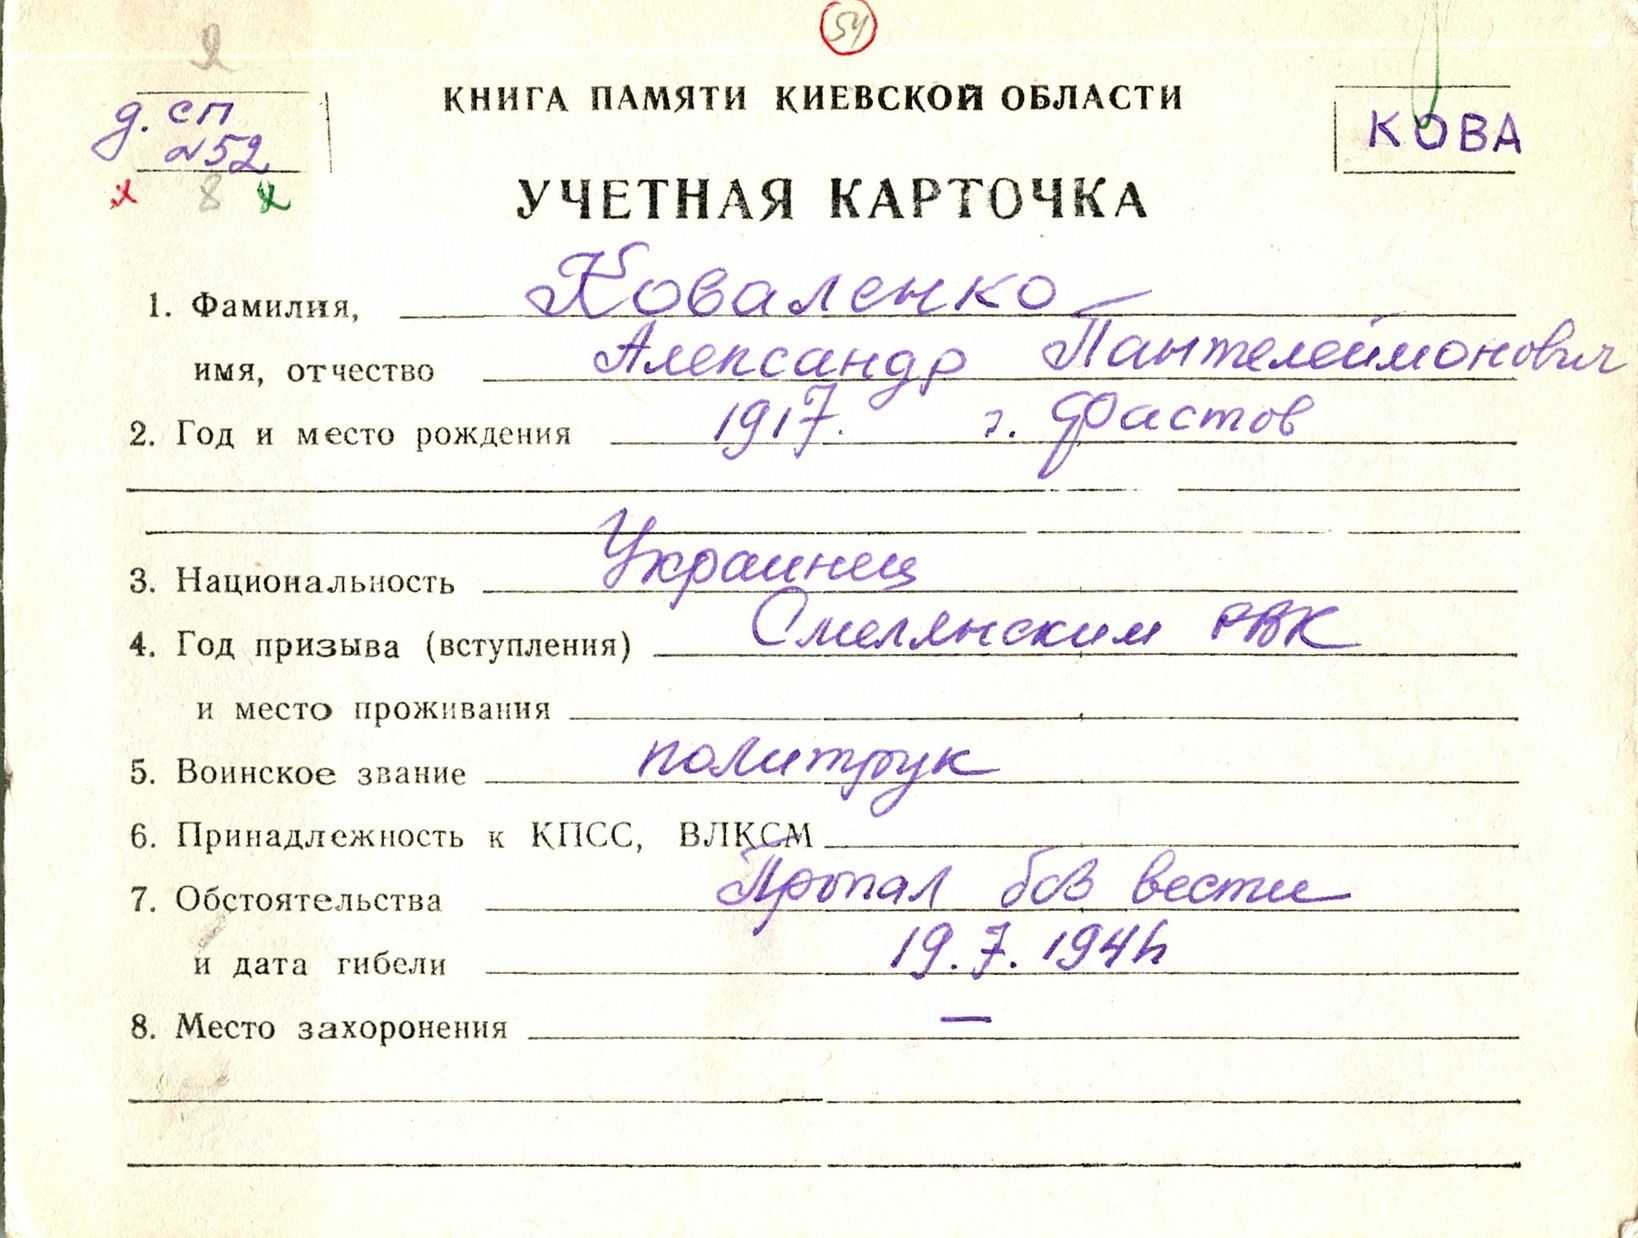 54
д. сп
№52
КНИГА ПАМЯТИ КИЕВСКОЙ ОБЛАСТИ
КОВА
8
УЧЕТНАЯ КАРТОЧКА
1. Фамилия, Коваленко
имя, отчество Александр Пантелеймонович
2. Год и место рождения 1917. г. Фастов
3. Национальность Украинец
4. Год призыва (вступления) Смелянским РВК
и место проживания
5. Воинское звание политрук
6. Принадлежность к КПСС, ВЛКСМ
7. Обстоятельства Пропал без вести
и дата гибели 19.7.1944
8. Место захоронения —